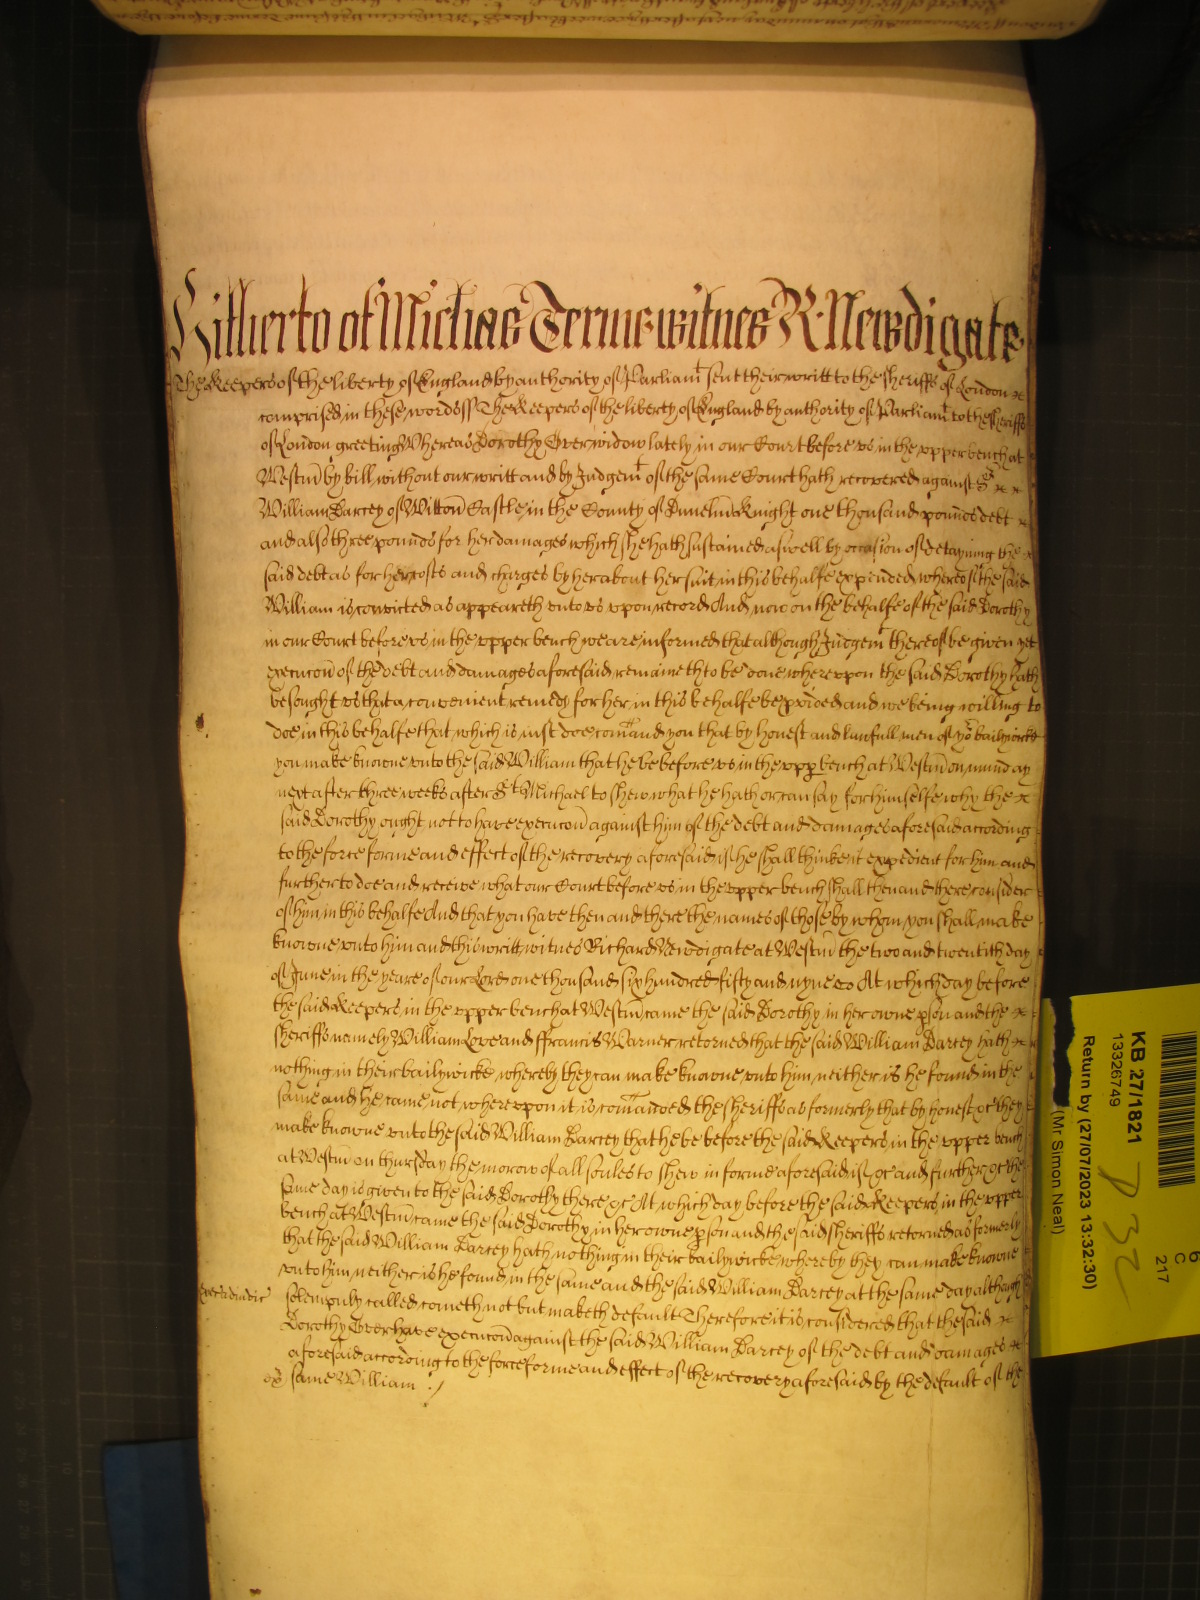 Hitherto of Michas Terme witnes R: Newdigate
The Keepers of the liberty of England by authority of Parliamt sent their writt to the Sheriffs of London
comprised in these words ss The Keepers of the liberty of England by authority of Parliamt to the Sheriffs
of London greeting Whereas Dorothy Over widow lately in our Court before us in the upper bench at
Westm by bill without our writt and by Judgemt of the same Court hath recovered against Sr
William Darcey of Witton Castle in the County of Dunelm Knight one thousand pounds debt
and also three pounds for her damages which she hath sustained aswell by occasion of detayning the
said debt as for her costs and charges by her about her suit in this behalfe expended whereof the said
William is convicted as appeareth unto us upon record And now on the behalfe of the said Dorothy
in our Court before us in the upper bench we are informed that although Judgemt thereof be given yet
execucon of the debt and damages aforesaid remaineth to be done whereupon the said Dorothy hath
besought us that a convenient remedy for her in this behalfe be pvided and we being willing to
doe in this behalfe that which is just doe comand you that by honest and lawfull men of yor bailywicke
you make knowne unto the said William that he be before us in the upp bench at Westm on munday
next after three weeks after St Michael to shew what he hath or can say for himselfe why the
said Dorothy ought not to have execucon against him of the debt and damages aforesaid according
to the force forme and effect of the recovery aforesaid if he shall thinke it expedient for him and
further to doe and receive what our Court before us in the upper bench shall then and there consider
of him in this behalfe And that you have then and there the names of those by whom you shall make
knowne unto him and this writt witnes Richard Newdigate at Westm the two and twentith day
of June in the yeare of our Lord one thousand six hundred fifty and nyne At which day before
the said Keepers in the upper bench at Westm came the said Dorothy in her owne pson and the
sheriffs namely William Love and ffrancis Warner retorned that the said William Darcey hath
nothing in their bailywicke whereby they can make knowne unto him neither is he found in the
same and he came not whereupon it is comanded the sheriffs as formerly that by honest &c they
make knowne unto the said William Darcey that he be before the said Keepers in the upper bench
at Westm on thursday the morow of all soules to shew in forme aforesaid if &c and further &c the
same day is given to the said Dorothy there &c At which day before the said Keepers in the upper
bench at Westm came the said Dorothy in her owne pson and the said sheriffs retorned as formerly
that the said William Darcey hath nothing in their bailywicke whereby they can make knowne
unto him neither is he found in the same and the said William Darcey at the same day although
solempnly called cometh not but maketh default Therefore it is considered that the said
Dorothy Over have execucon against the said William Darcey of the debt and damages
aforesaid according to the force forme and effect of the recovery aforesaid by the default of the
same William
KB 27/1821
13326749
Return by (27/07/2023 13:32:30)
(Mr. Simon Neal)
6
C
217
P 32